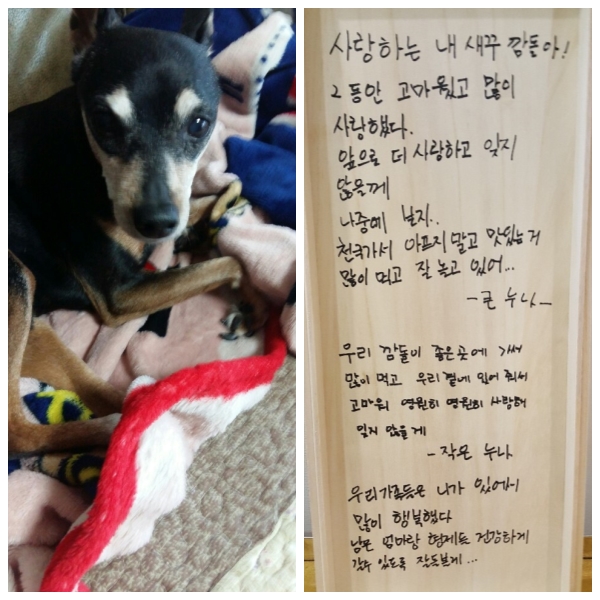 사랑하는 내 새꾸 깜돌아!
그동안 고마웠고 많이
사랑했다.
앞으로 더 사랑하고 잊지
않을께
나중에 보자..
천국가서 아프지말고 맛있는거
많이 먹고 잘 놀고 있어...
-큰 누나-
우리 깜돌이 좋은곳에 가서
많이먹고 우리곁에 있어 줘서
고마워 영원히 영원히 사랑해
잊지 않을게
-작은 누나
우리가족들은 니가 있어서
많이 행복했다
남은 엄마랑 형제들 건강하게
갈수 있도록 잘돌볼게...